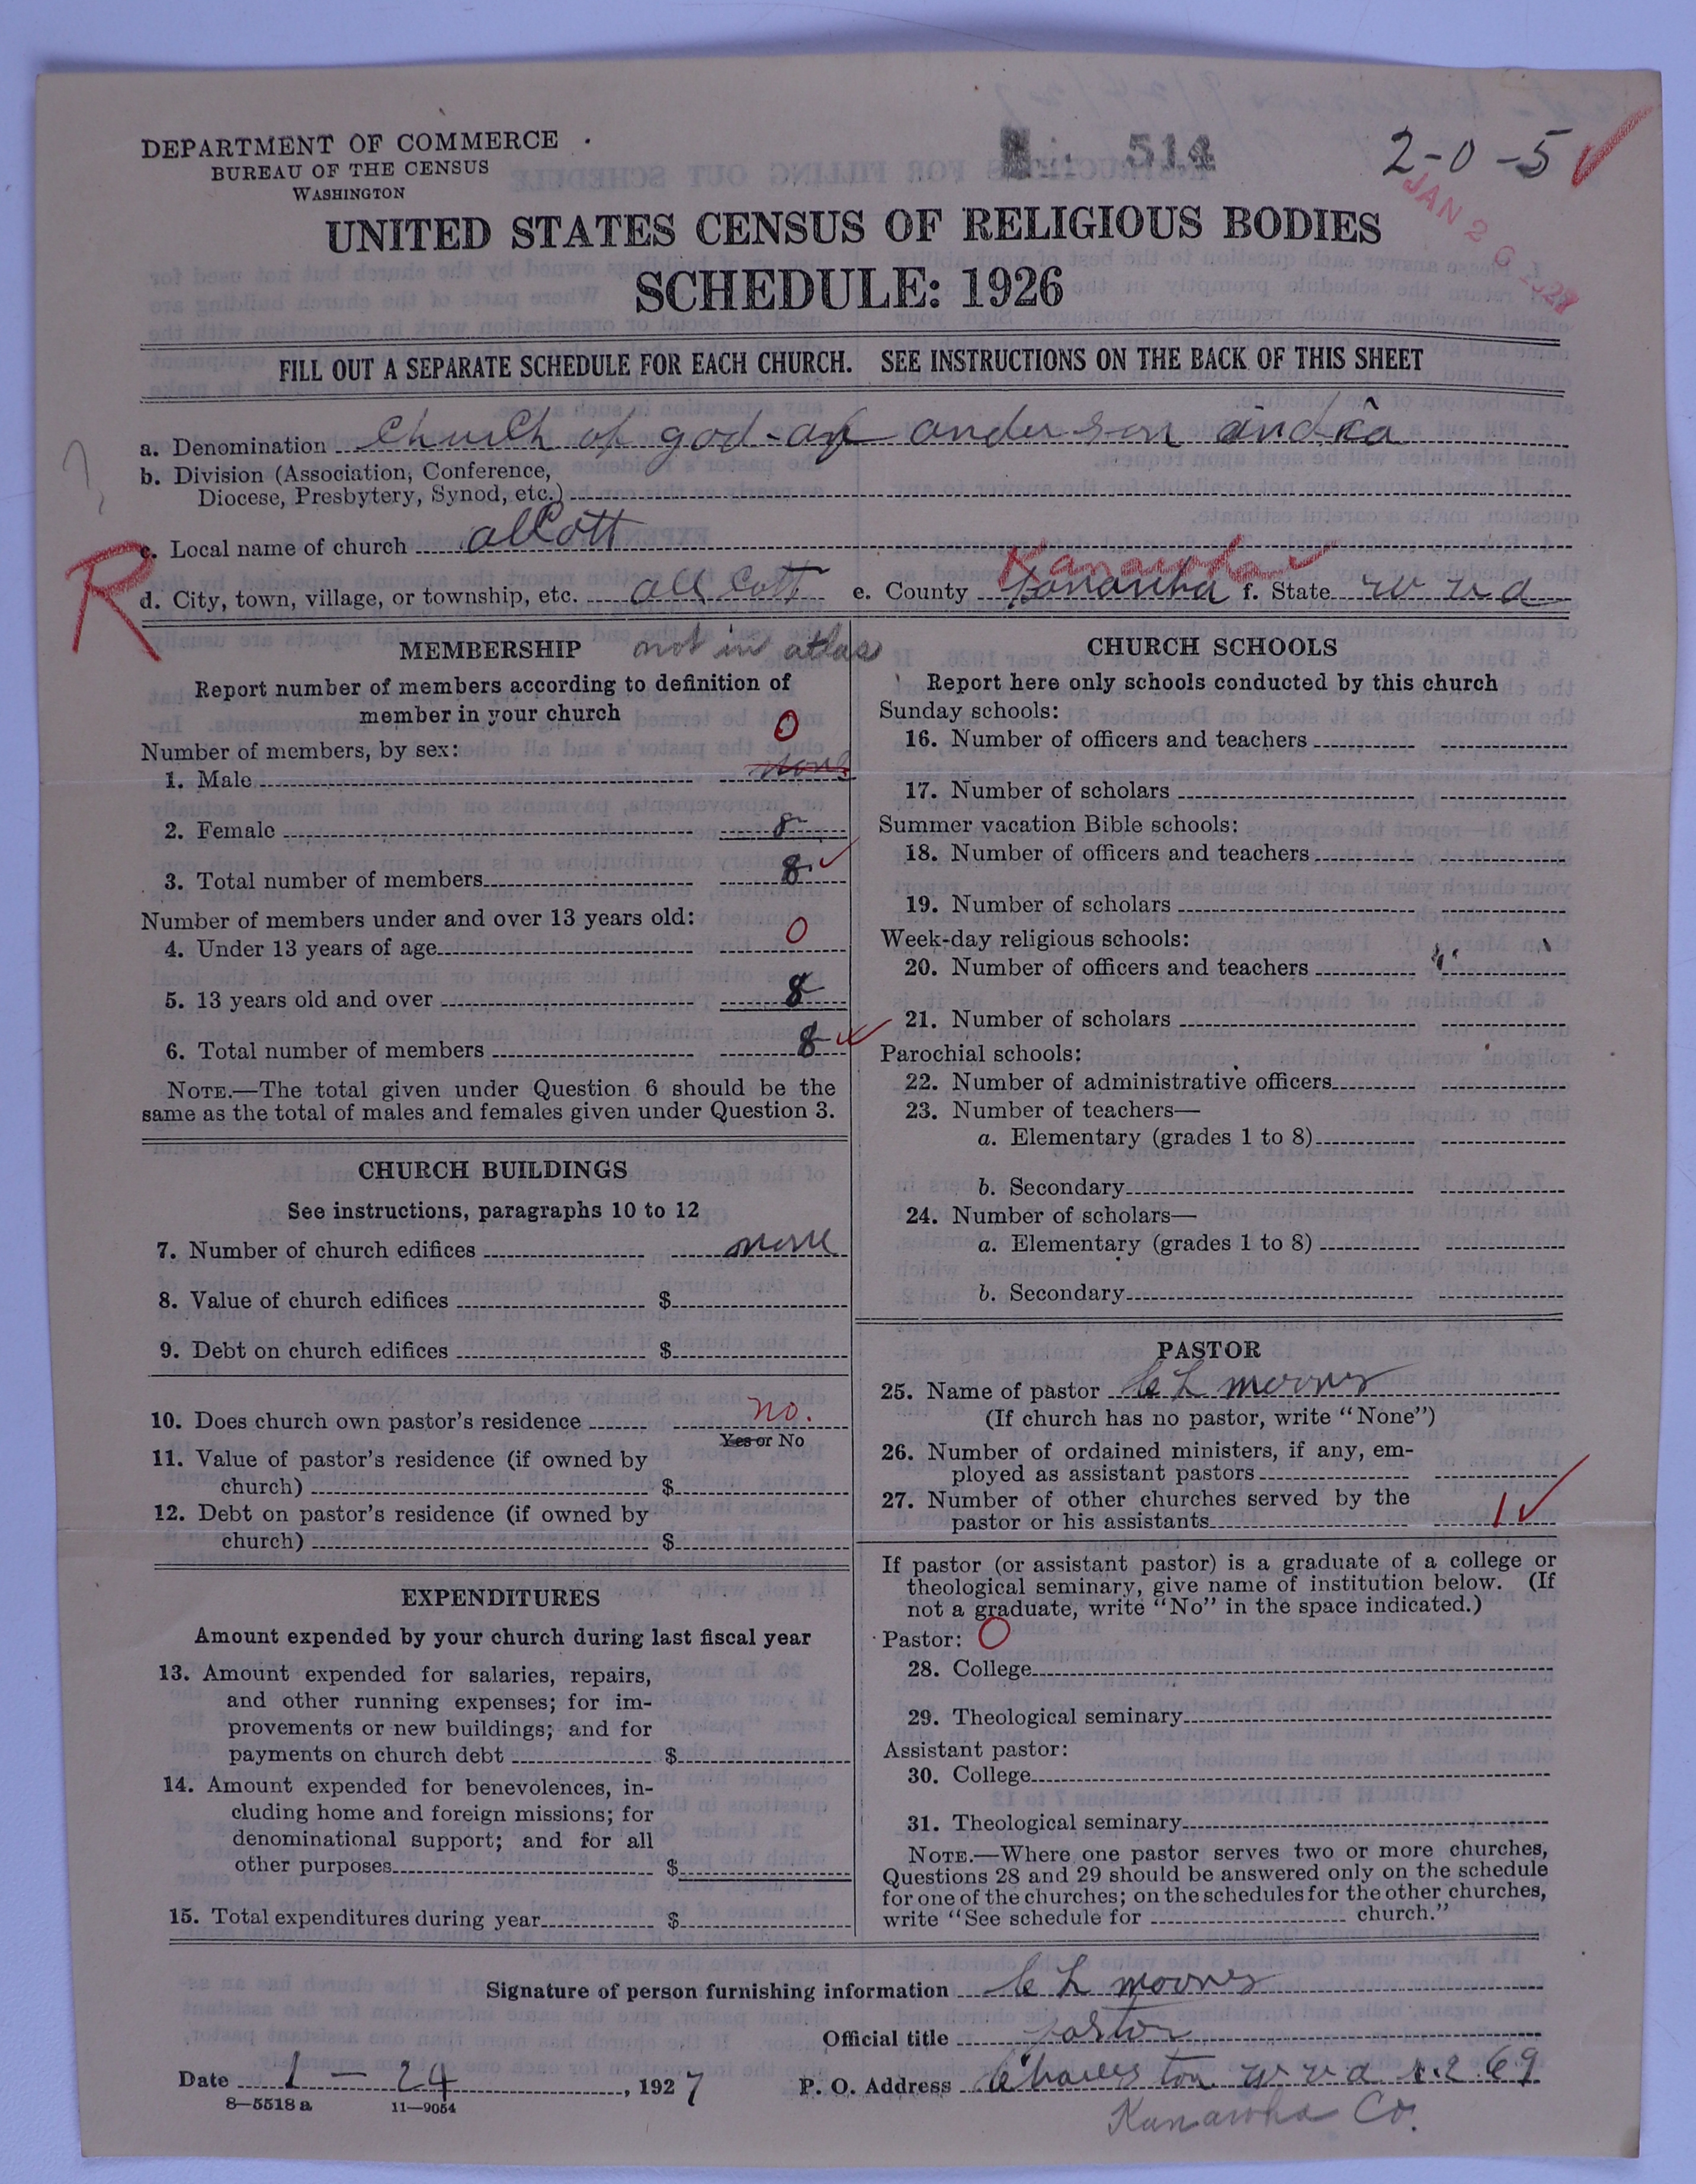 DEPARTMENT OF COMMERCE
BUREAU OF THE CENSUS
WASHINGTON
514
2-0-5
JAN 26 1927
UNITED STATES CENSUS OF RELIGIOUS BODIES
SCHEDULE: 1926
FILL OUT A SEPARATE SCHEDULE FOR EACH CHURCH. SEE INSTRUCTIONS ON THE BACK OF THIS SHEET
a. Denomination church of god-of anderson india
b. Division (Association, Conference,
Diocese, Presbytery, Synod, etc.)
c. Local name of church allcott
R
Kanawha
d. City, town, village, or township, etc. all cott e. County Kanawha f. State w va
MEMBERSHIP not in atlas
Report number of members according to definition of
member in your church
0
Number of members, by sex:
1. Male none
2. Female 8
3. Total number of members 8
Number of members under and over 13 years old:
4. Under 13 years of age 0
5. 13 years old and over 8
6. Total number of members 8
NOTE.—The total given under Question 6 should be the
same as the total of males and females given under Question 3.
CHURCH BUILDINGS
See instructions, paragraphs 10 to 12
7. Number of church edifices none
8. Value of church edifices $
9. Debt on church edifices $
10. Does church own pastor's residence no.
Yes or No
11. Value of pastor's residence (if owned by
church) $
12. Debt on pastor's residence (if owned by
church) $
EXPENDITURES
Amount expended by your church during last fiscal year
13. Amount expended for salaries, repairs,
and other running expenses; for im-
provements or new buildings; and for
payments on church debt $
14. Amount expended for benevolences, in-
cluding home and foreign missions; for
denominational support; and for all
other purposes $
15. Total expenditures during year $
CHURCH SCHOOLS
Report here only schools conducted by this church
Sunday schools:
16. Number of officers and teachers
17. Number of scholars
Summer vacation Bible schools:
18. Number of officers and teachers
19. Number of scholars
Week-day religious schools:
20. Number of officers and teachers
21. Number of scholars
Parochial schools:
22. Number of administrative officers
23. Number of teachers—
a. Elementary (grades 1 to 8)
b. Secondary
24. Number of scholars—
a. Elementary (grades 1 to 8)
b. Secondary
PASTOR
25. Name of pastor C L moores
(If church has no pastor, write "None")
26. Number of ordained ministers, if any, em-
ployed as assistant pastors
27. Number of other churches served by the
pastor or his assistants 1
If pastor (or assistant pastor) is a graduate of a college or
theological seminary, give name of institution below. (If
not a graduate, write "No" in the space indicated.)
Pastor: 0
28. College
29. Theological seminary
Assistant pastor:
30. College
31. Theological seminary
NOTE.—Where one pastor serves two or more churches,
Questions 28 and 29 should be answered only on the schedule
for one of the churches; on the schedules for the other churches,
write "See schedule for church."
Signature of person furnishing information C L moores
Official title pastor
Date 1 - 24, 1927 P. O. Address Charleston w va r.2 69
8-5518 a 11-9054
Kanawha Co.